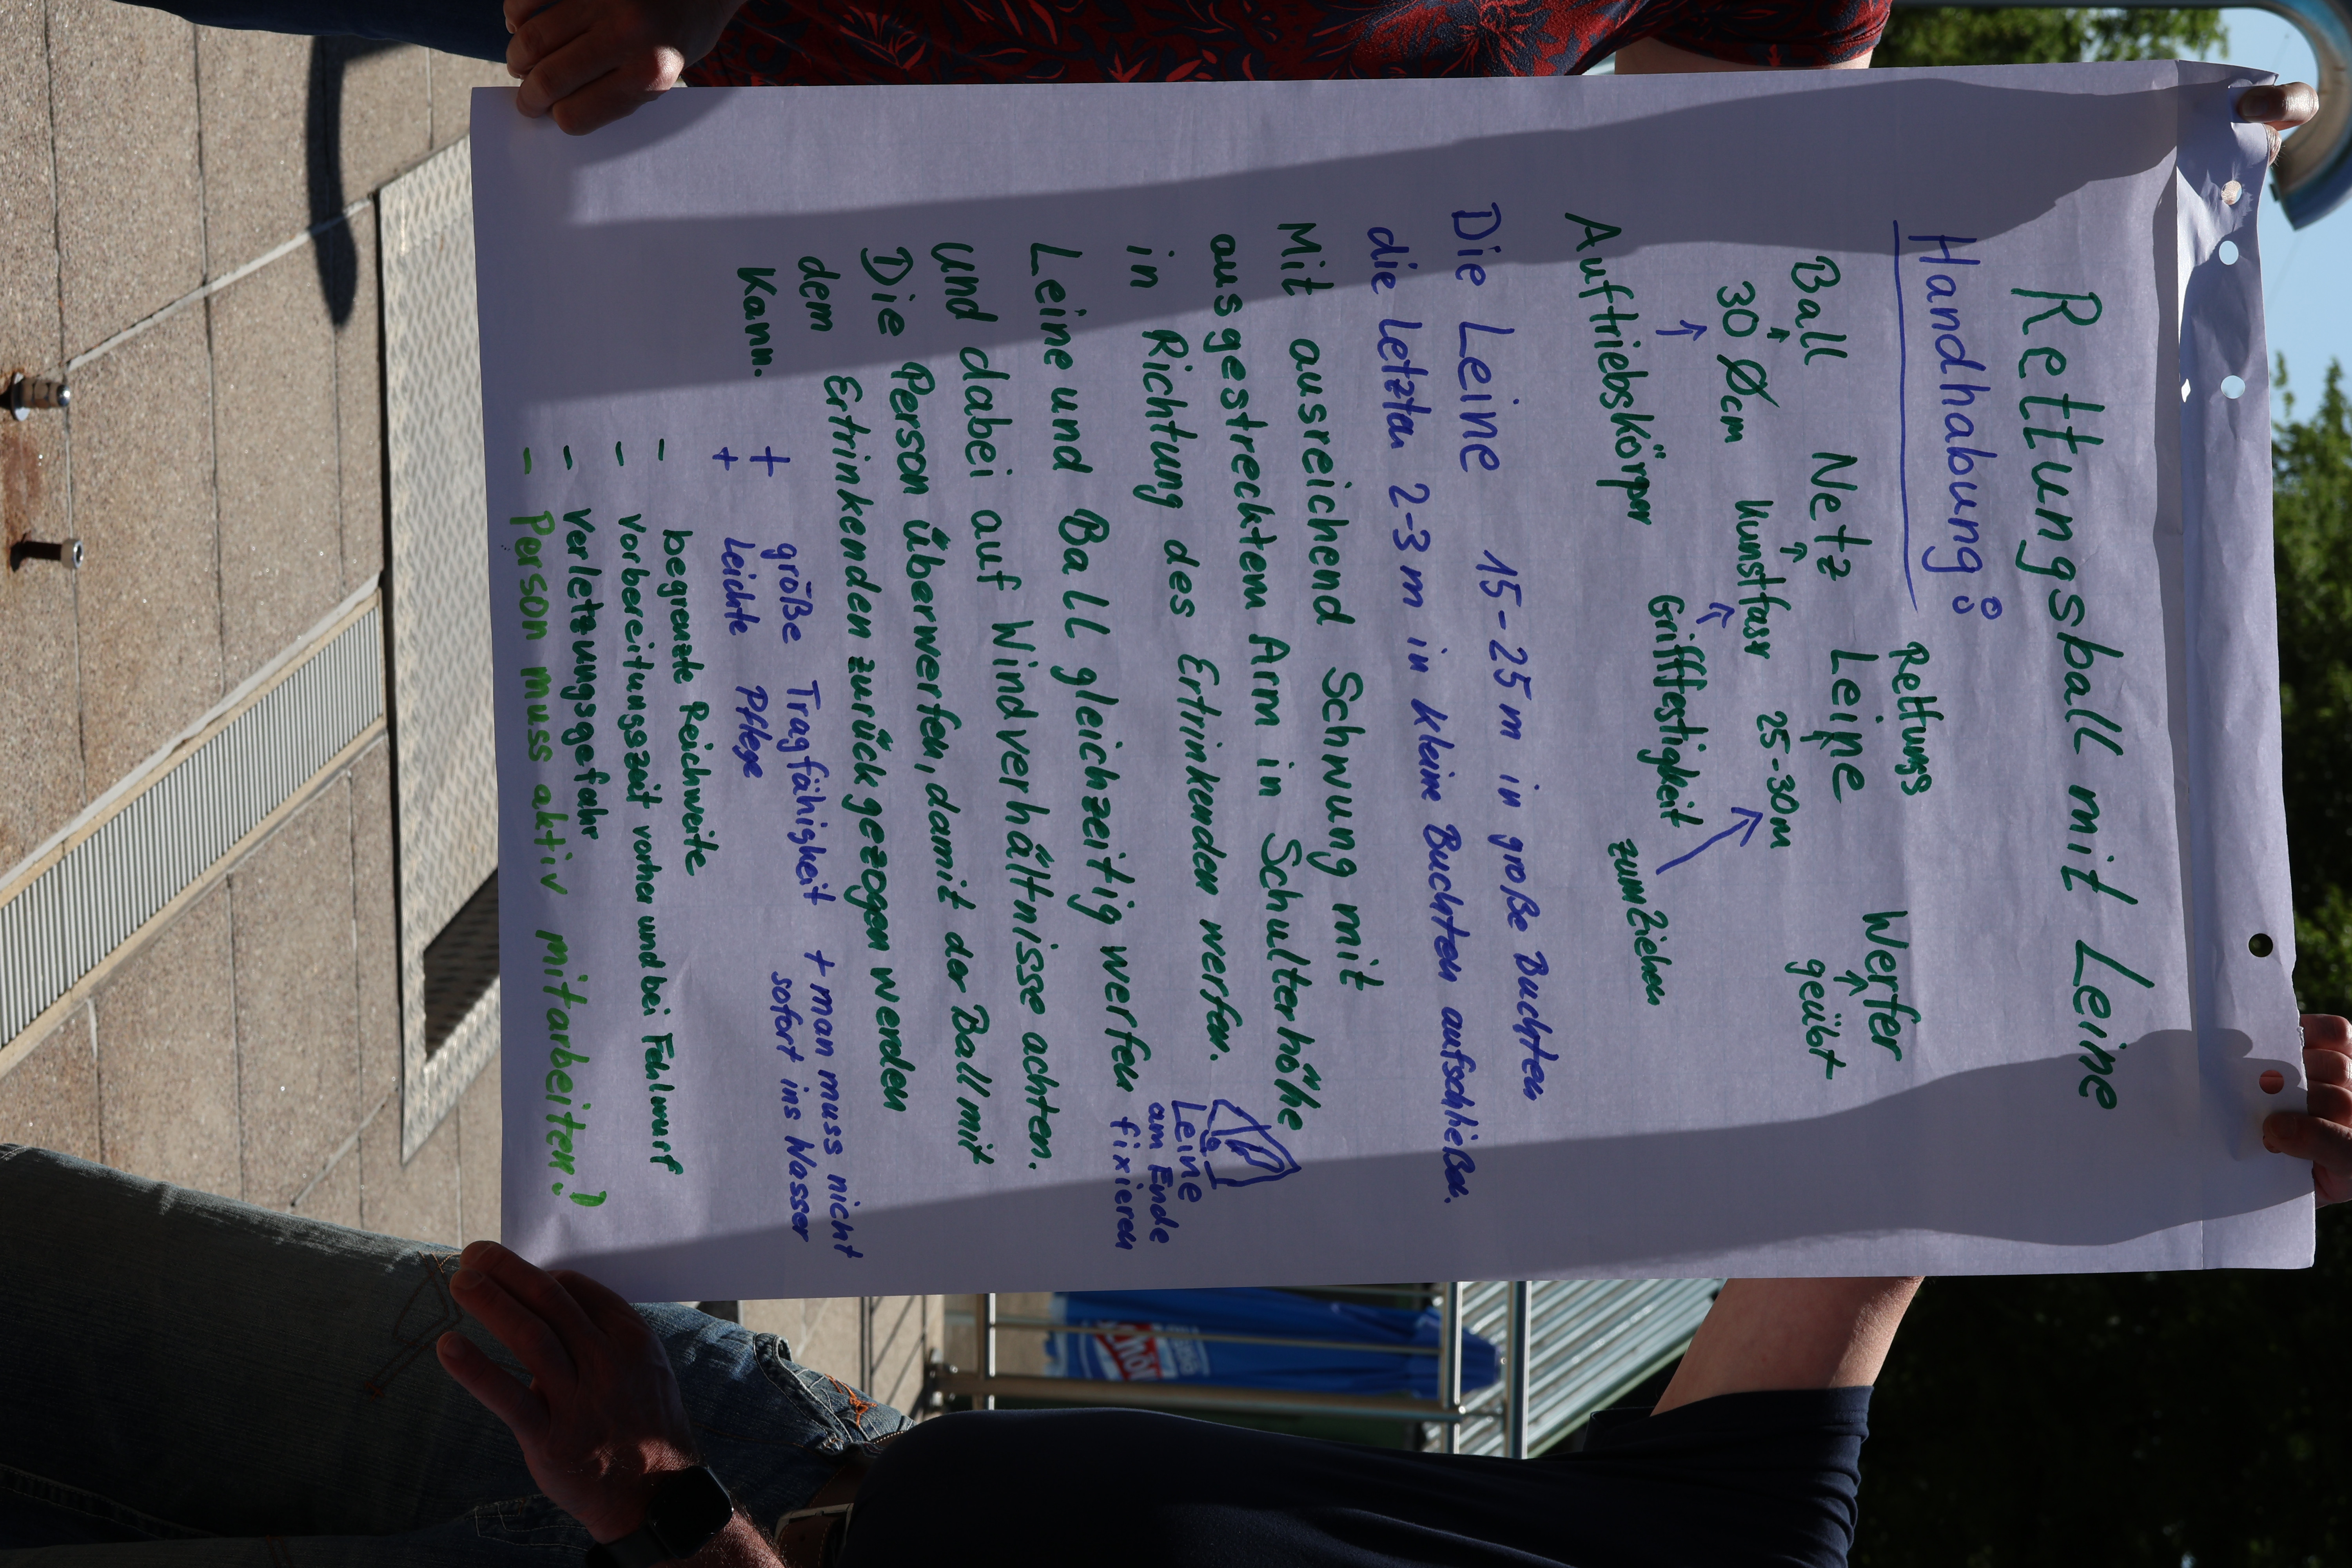 Rettungsball mit Leine
Handhabung:
Rettungs
Ball Netz Leine Werfer
30 Ø cm Kunstfaser 25-30m geübt
Auftriebskörper Grifffestigkeit zum Ziehen
Die Leine 15-25m in große Buchten
die letzten 2-3m in kleine Buchten aufschießen.
Mit ausreichend Schwung mit
ausgestrecktem Arm in Schulterhöhe
in Richtung des Ertrinkenden werfen.
Leine und Ball gleichzeitig werfen
Leine
am Ende
fixieren
und dabei auf Windverhältnisse achten.
Die Person überwerfen, damit der Ball mit
dem Ertrinkenden zurückgezogen werden
Kann.
+ größe Tragfähigkeit + man muss nicht
sofort ins Wasser
+ leichte Pflege
- begrenzte Reichweite
- Vorbereitungszeit vorher und bei Fehlwurf
- Verletzungsgefahr
- Person muss aktiv mitarbeiten!